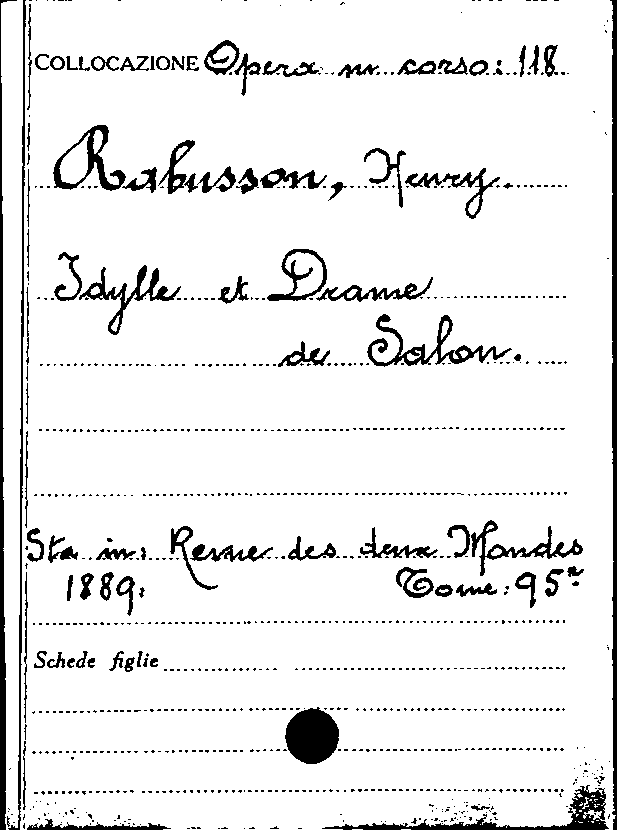 COLLOCAZIONE Opera in corso: 118.
Rabusson, Henry.
Idylle et Drame
de Salon.
Sta in: Revue des deux Mondes
1889. Tome: 95e
Schede figlie